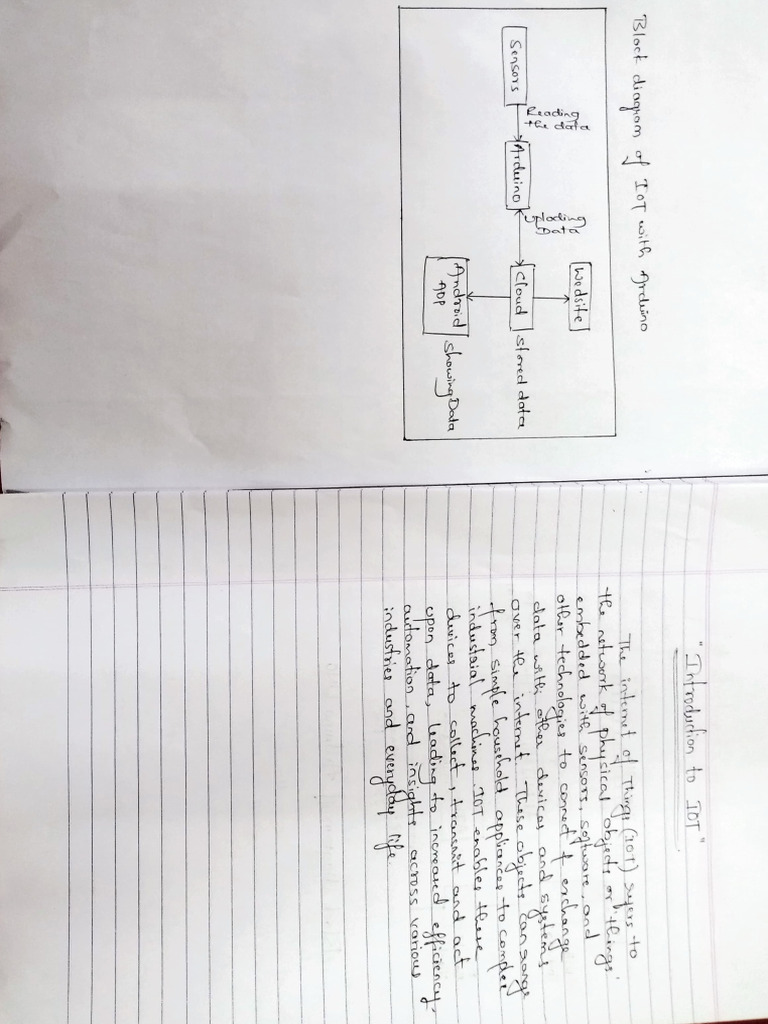 Block diagram of IOT with Arduino
Sensors
Reading
the data
Arduino
Uploding
Data
Cloud
stored data
Wedsite
Android
App
showing Data
"Introduction to IOT"
The internet of Things (IOT) refers to
the network of physical objects or 'things'
embedded with sensors, software, and
other technologies to connect & exchange
data with other devices and systems
over the internet. These objects can range
from simple household appliances to complex
industrial machines. IOT enables these
devices to collect, transmit and act
upon data, leading to increased efficiency,
automation, and insights across various
industries and everyday life